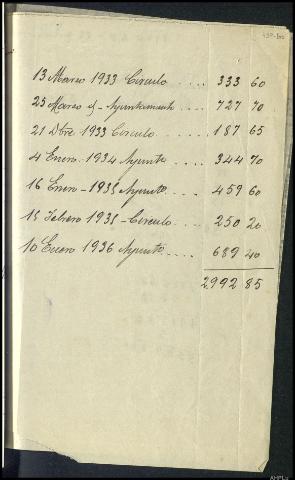 13 Marzo 1933 Circulo .... 333 60
25 Marzo d - Ayuntamiento .. 727 70
21 Dbre 1933 Circulo ..... 187 65
4 Enero 1934 Ayunto .... 344 70
16 Enero - 1935 Ayunto .... 459 60
15 Febrero 1935 - Circulo .... 250 20
10 Enero 1936 Ayunto .... 689 40
2992 85
AHPLu